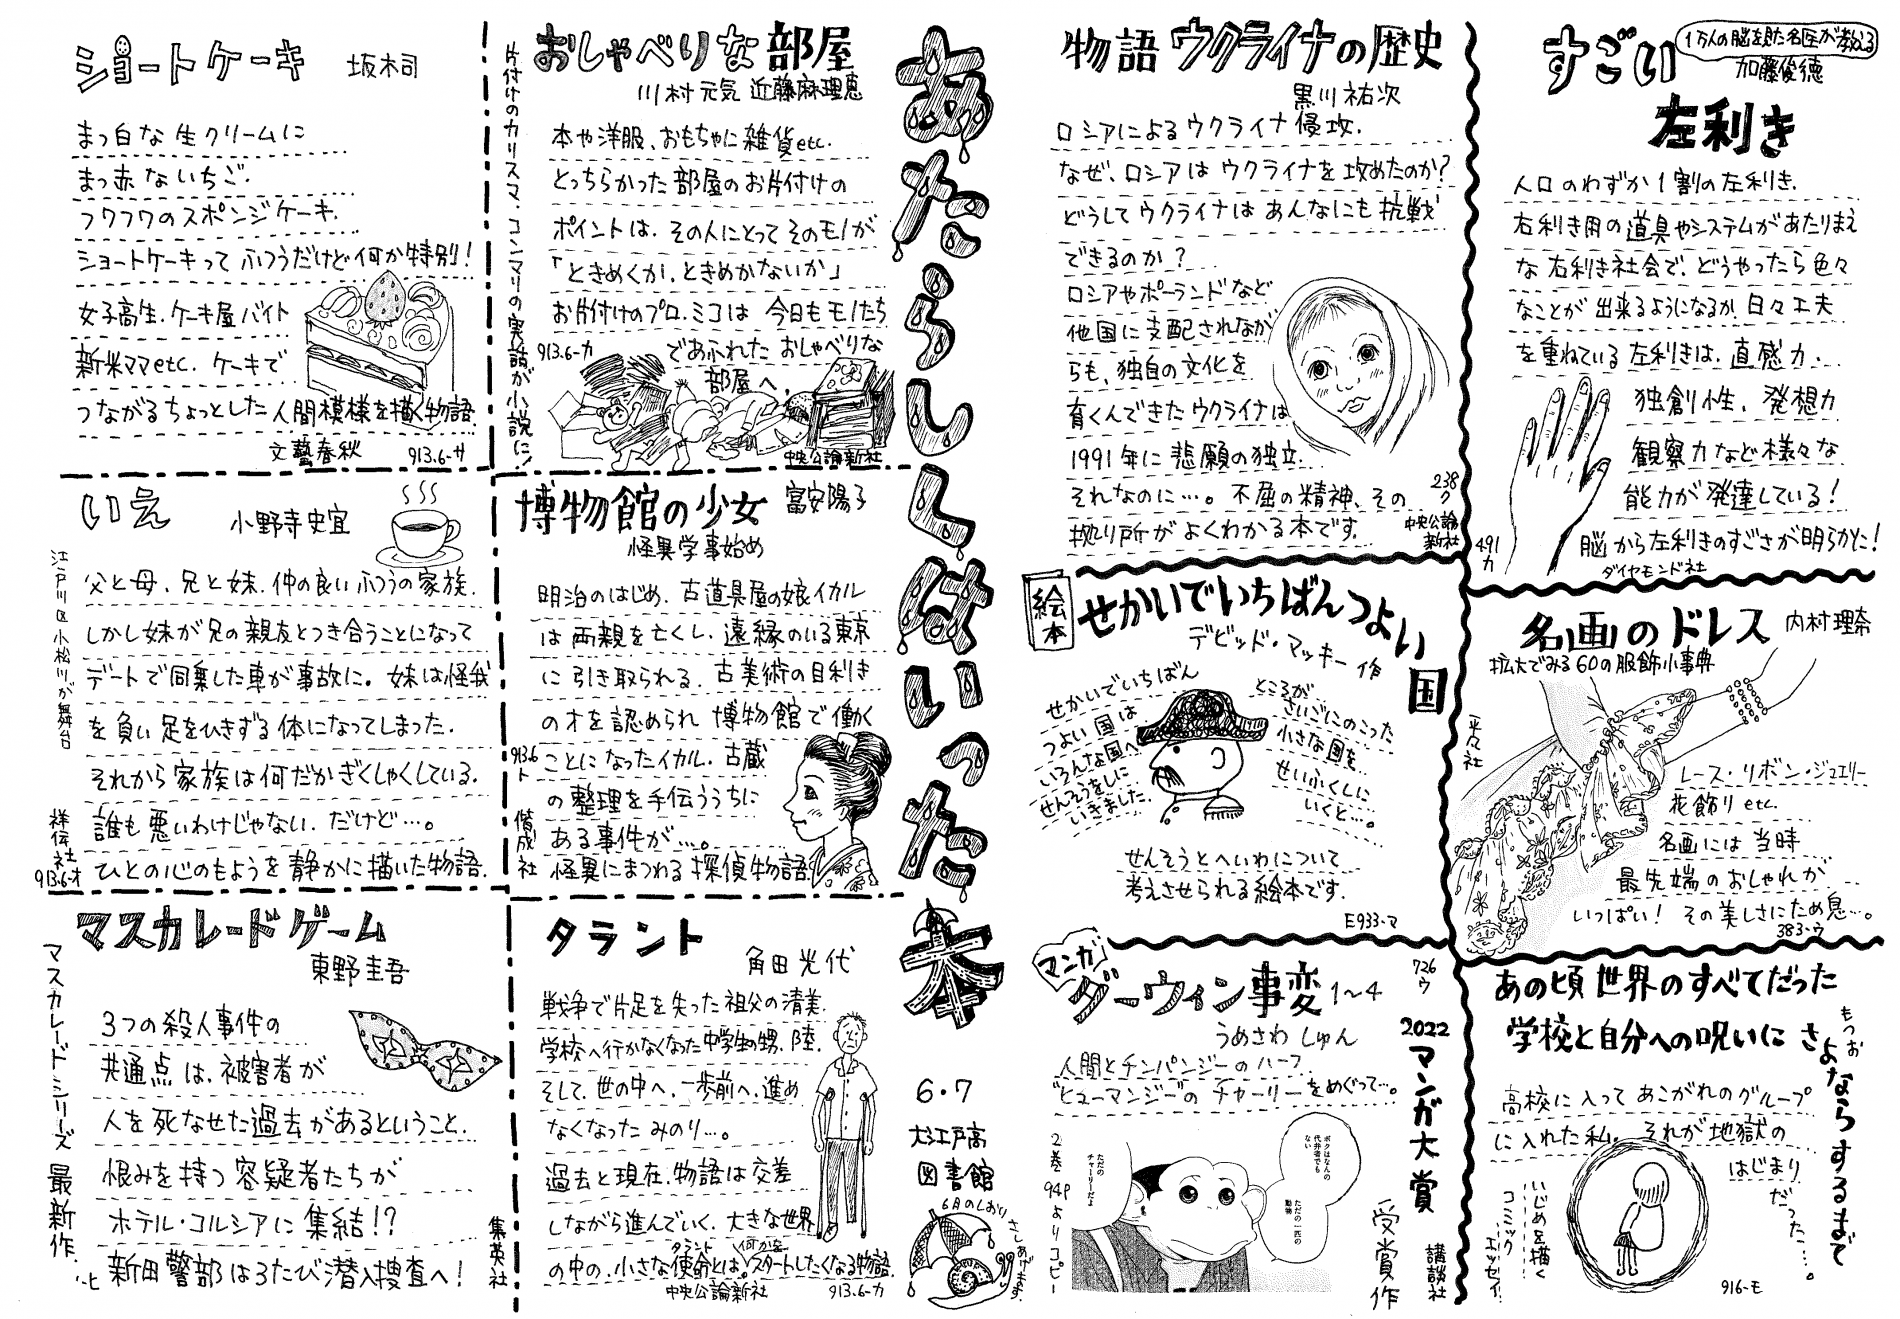 ショートケーキ 坂木司
まっ白な生クリームに
まっ赤ないちご.
フワフワのスポンジケーキ.
ショートケーキって ふつうだけど何か特別!
女子高生.ケーキ屋バイト
新米ママetc. ケーキで
つながるちょっとした人間模様を描く物語.
文藝春秋 913.6-サ
片付けのカリスマ.コンマリの実話が小説に!
おしゃべりな部屋
川村元気 近藤麻理恵
本や洋服、おもちゃに雑貨etc.
とっちらかった部屋のお片付けの
ポイントは.その人にとってそのモノが
「ときめくか.ときめかないか」
お片付けのプロ.ミコは 今日もモノたち
であふれた おしゃべりな
部屋へ.
913.6-カ
中央公論新社
いえ 小野寺史宜
江戸川区小松川が舞台
父と母、兄と妹.仲の良いふつうの家族.
しかし妹が兄の親友とつき合うことになって
デートで同乗した車が事故に。妹は怪我
を負い足をひきずる体になってしまった.
それから家族は何だかぎくしゃくしている.
誰も悪いわけじゃない.だけど…。
ひとの心のもようを静かに描いた物語.
祥伝社
913.6-オ
博物館の少女 富安陽子
怪異学事始め
明治のはじめ.古道具屋の娘イカル
は両親を亡くし.遠縁のいる東京
に引き取られる.古美術の目利き
の才を認められ博物館で働く
ことになったイカル.古蔵
の整理を手伝ううちに
ある事件が…。
怪異にまつわる探偵物語.
913.6
ト
偕成社
マスカレードゲーム
東野圭吾
マスカレードシリーズ最新作.
3つの殺人事件の
共通点は.被害者が
人を死なせた過去があるということ.
恨みを持つ容疑者たちが
ホテル・コルシアに集結!?
新田警部は3たび潜入捜査へ!
集英社
ヒ
タラント
角田光代
戦争で片足を失った祖父の清美.
学校へ行かなくなった中学生の甥.陸.
そして.世の中へ.一歩前へ.進め
なくなったみのり…。
過去と現在.物語は交差
しながら進んでいく.大きな世界
の中の.小さな使命とは.スタートしたくなる物語.
タラント
何かを
中央公論新社 913.6-カ
あたらしくはいった本
6・7
大江戸高
図書館
6月のしおり
さしあげます.
物語 ウクライナの歴史
黒川祐次
ロシアによるウクライナ侵攻.
なぜ、ロシアはウクライナを攻めたのか?
どうしてウクライナはあんなにも抗戦
できるのか?
ロシアやポーランドなど
他国に支配されなが
らも、独自の文化を
育くんできたウクライナは
1991年に悲願の独立.
それなのに…。不屈の精神、その
拠り所がよくわかる本です.
238
ク
中央公論
新社
すごい
左利き
1万人の脳を見た名医が教える
加藤俊徳
人口のわずか1割の左利き.
右利き用の道具やシステムがあたりまえ
な右利き社会で、どうやったら色々
なことが出来るようになるか.日々工夫
を重ねている左利きは.直感力.
独創性、発想力
観察力など様々な
能力が発達している!
脳から左利きのすごさが明らかに!
ダイヤモンド社
491
カ
絵本
せかいでいちばんつよい国
デビッド・マッキー 作
せかいでいちばん
つよい国は
いろんな国へ
せんそうをしに
いきました.
ところが
さいごにのこった
小さな国を
せいふくしに
いくと….
せんそうとへいわについて
考えさせられる絵本です.
E933-マ
名画のドレス 内村理奈
拡大でみる60の服飾小事典
平凡社
レース・リボン・ジュエリー
花飾りetc.
名画には当時
最先端のおしゃれが
いっぱい! その美しさにため息…。
383-ウ
マンガ
ダーウィン事変 1~4
うめざわ しゅん
726
ウ
人間とチンパンジーのハーフ.
"ヒューマンジー"のチャーリーをめぐって…。
2022マンガ大賞
受賞作
講談社
2巻94Pよりコピー
ボクはなんの
代弁者でも
ない
ただの一匹の
動物
ただの
チャーリーだよ
あの頃世界のすべてだった
学校と自分への呪いにさよならするまで
もつお
高校に入ってあこがれのグループ
に入れた私.それが地獄の
はじまり
だった…。
いじめを描く
コミック
エッセイ.
916-モ